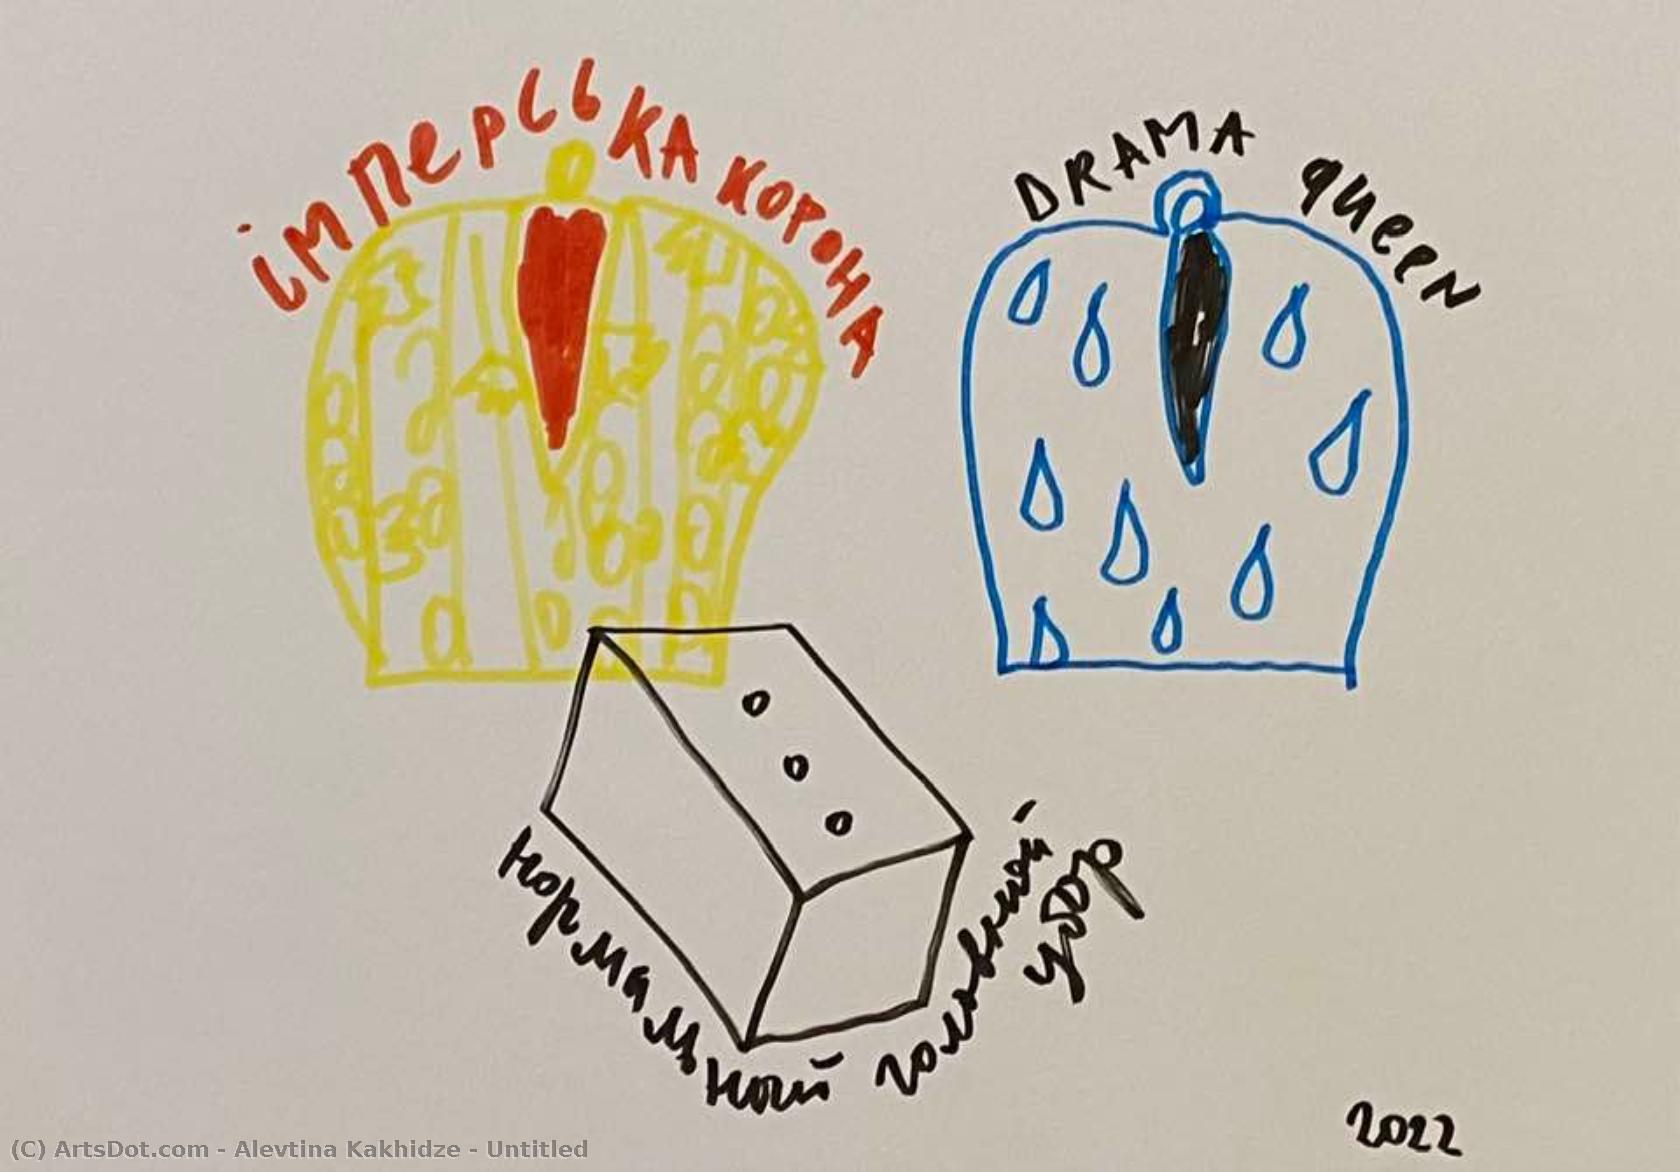 імперська корона
DRAMA queen
нормальний головний
убор
2022
(C) ArtsDot.com - Alevtina Kakhidze - Untitled